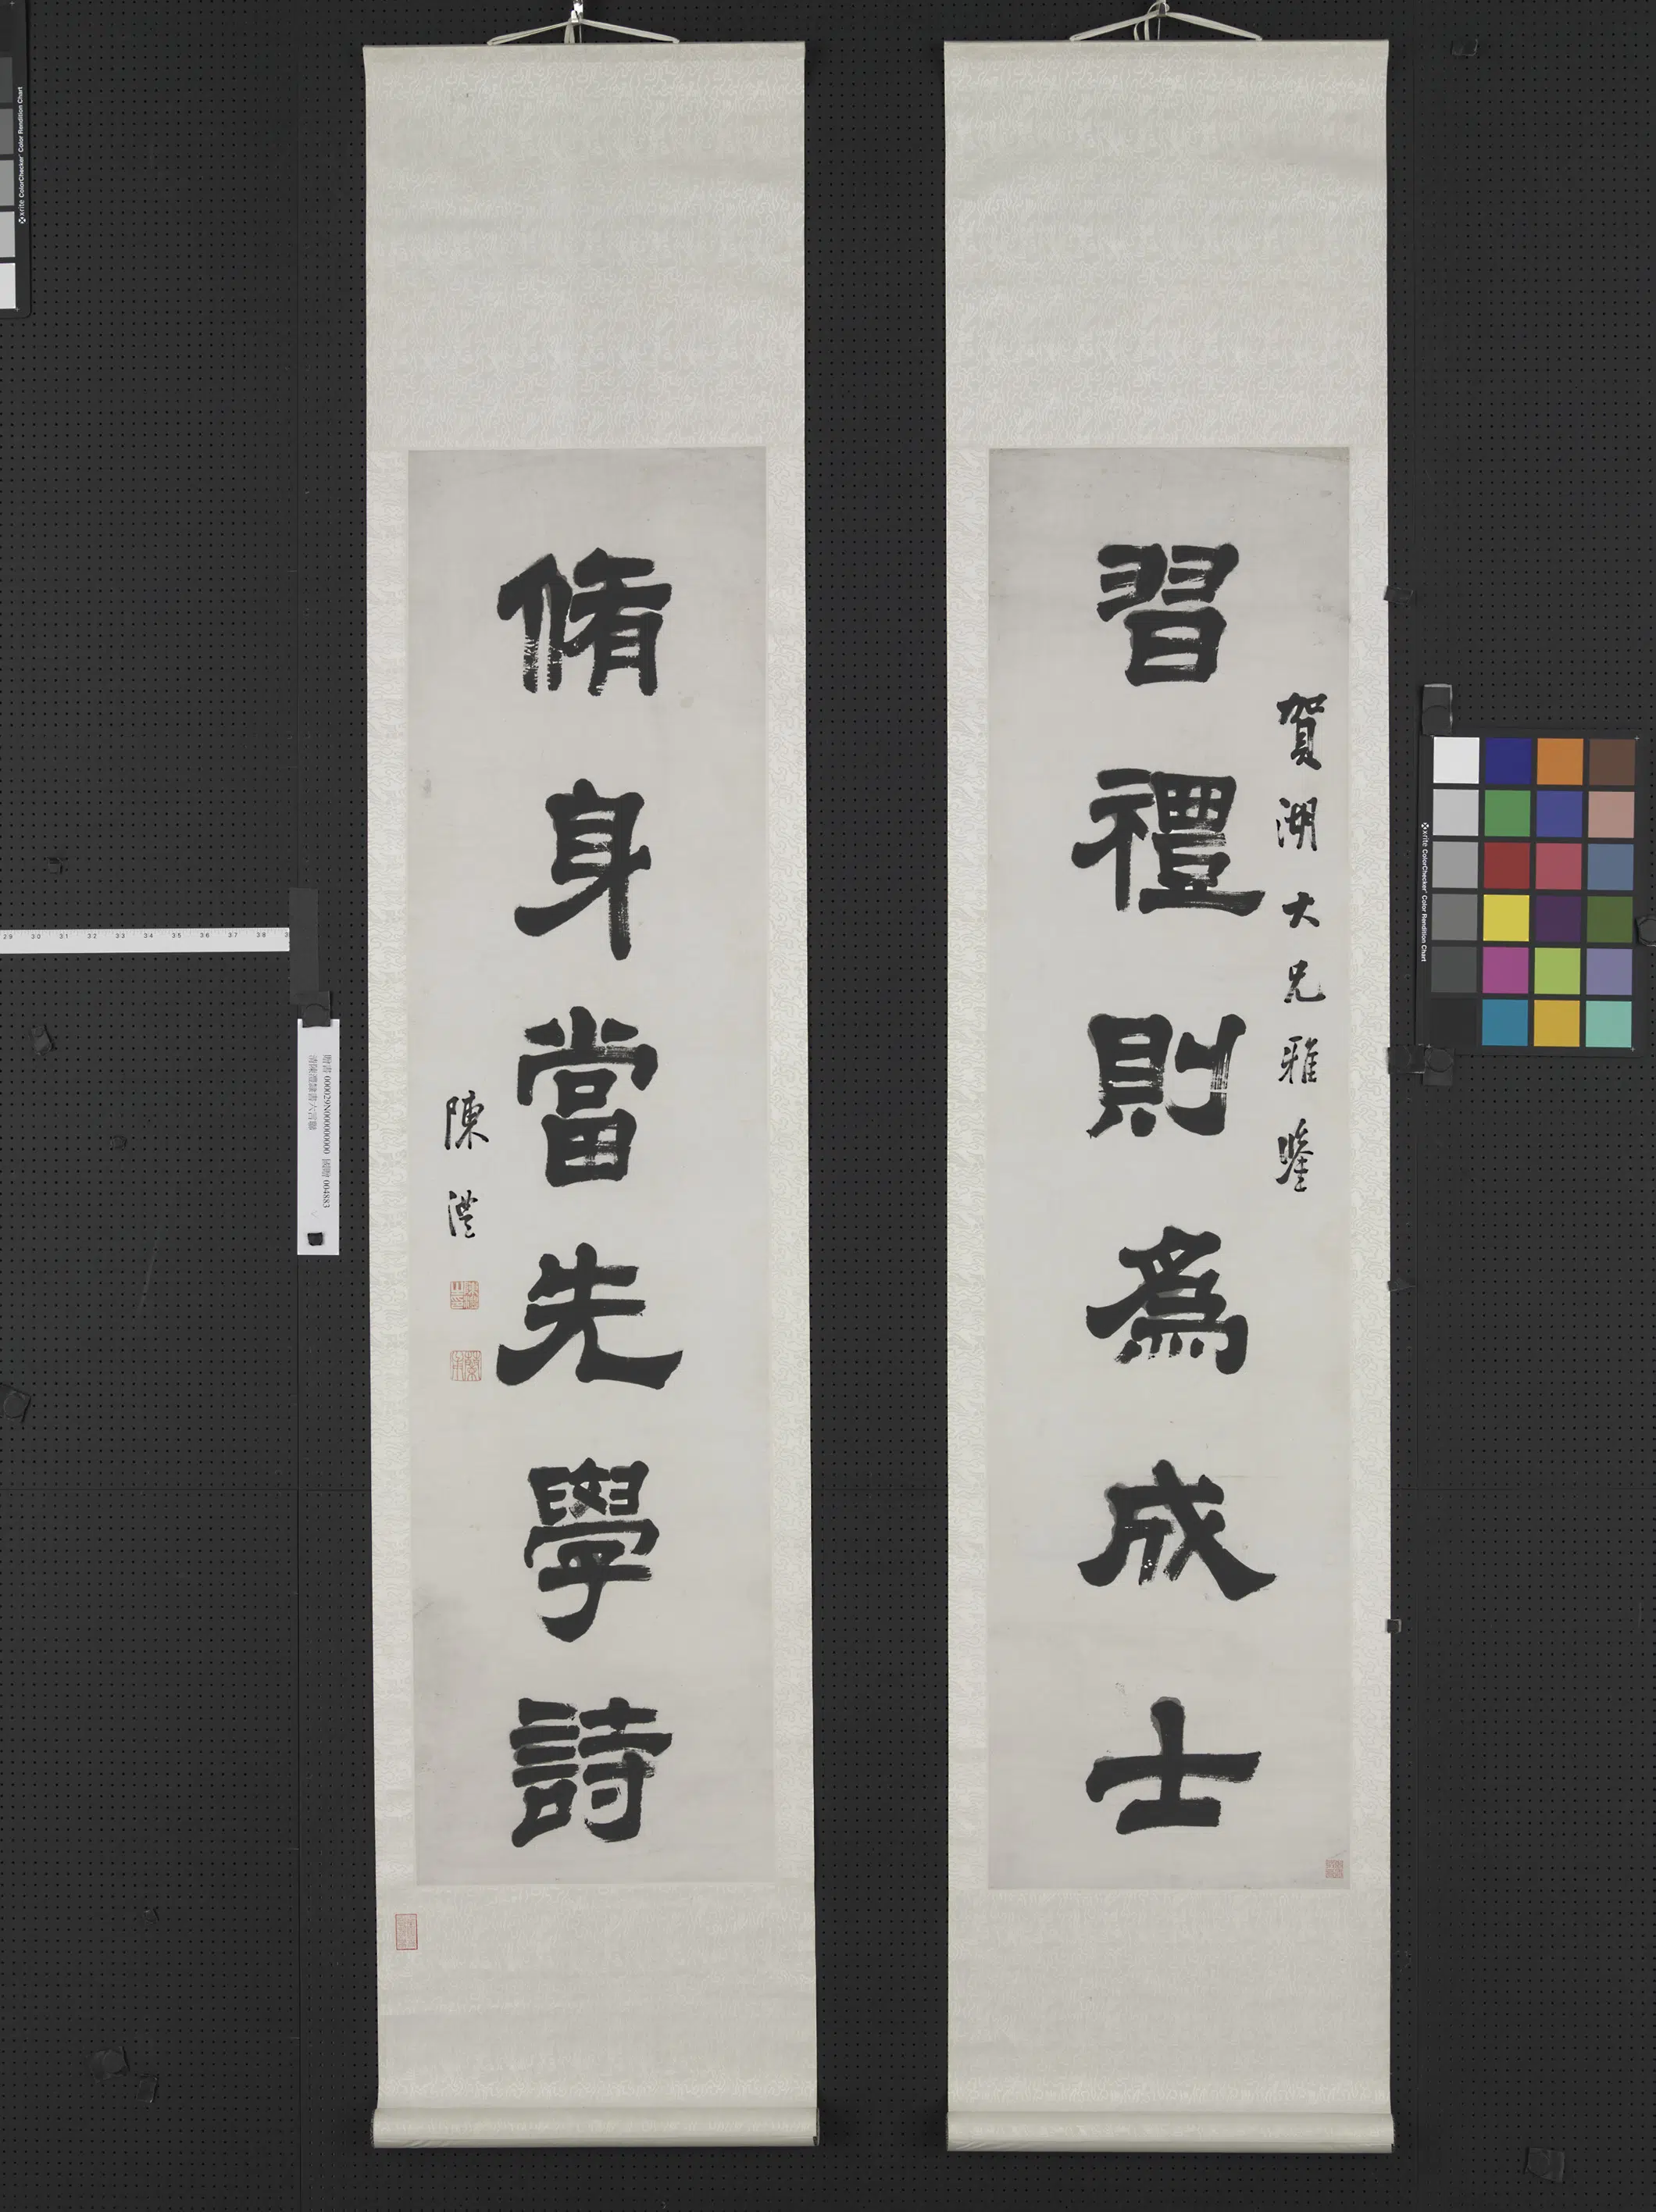 習禮則為成士
賀湖大兄雅鑒
脩身當先學詩
陳澧
贈書 000029N000000000 國贈 004883
清陳澧隸書六言聯
29 30 31 32 33 34 35 36 37 38
xrite ColorChecker Color Rendition Chart
xrite ColorChecker Color Rendition Chart